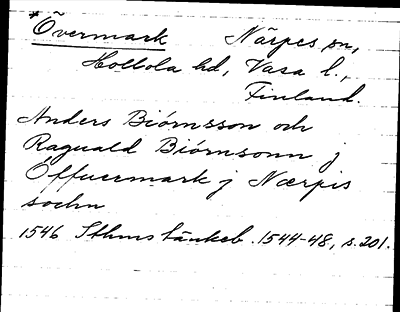 *Övermark Närpes sn,
Hollola hd, Vasa l.,
Finland.
Anders Biórnsson och
Raguald Biórnsonn j
Öffuermark j Nærpis
sochn
1546 Sthms tänkeb. 1544-48, s. 201.